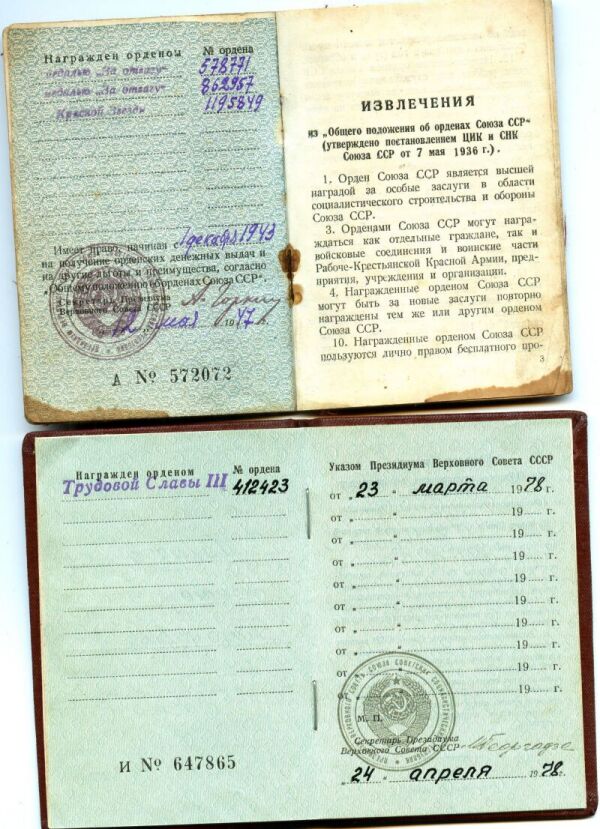 Награжден орденом № ордена
медалью „За отвагу" 578771
медалью „За отвагу" 862957
Красной Звезды 1195849
Имеет право, начиная 1 декабря 1943
на получение орденских денежных выдач и
на другие льготы и преимущества, согласно
„Общему положению об орденах Союза ССР"
Секретарь Президиума
Верховного Совета СССР А. Горкин
12 „ мая 1947 г.
А № 572072
ИЗВЛЕЧЕНИЯ
из „Общего положения об орденах Союза ССР"
(утверждено постановлением ЦИК и СНК
Союза ССР от 7 мая 1936 г.).
1. Орден Союза ССР является высшей
наградой за особые заслуги в области
социалистического строительства и обороны
Союза ССР.
3. Орденами Союза ССР могут награ-
ждаться как отдельные граждане, так и
войсковые соединения и воинские части
Рабоче-Крестьянской Красной Армии, пред-
приятия, учреждения и организации.
4. Награжденные орденом Союза ССР
могут быть за новые заслуги повторно
награждены тем же или другим орденом
Союза ССР.
10. Награжденные орденом Союза ССР
пользуются лично правом бесплатного про-
3
Награжден орденом № ордена
Трудовой Славы III 412423
И № 647865
Указом Президиума Верховного Совета СССР
от „ 23 " марта 1978 г.
от „ " 19 г.
от „ " 19 г.
от „ " 19 г.
от „ " 19 г.
от „ " 19 г.
от „ " 19 г.
от „ " 19 г.
от „ " 19 г.
от „ " 19 г.
М. П.
Секретарь Президиума
Верховного Совета СССР М. Георгадзе
„ 24 " апреля 1978 г.